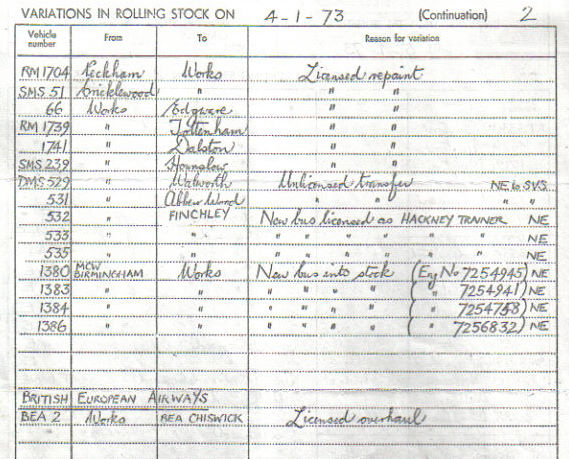 VARIATIONS IN ROLLING STOCK ON 4-1-73 (Continuation) 2
Vehicle number From To Reason for variation
RM 1704 Peckham Works Licensed repaint
SMS 51 Cricklewood " " "
66 Works Edgware " "
RM 1739 " Tottenham " "
1741 " Dalston " "
SMS 239 " Hounslow " "
DMS 529 " Walworth Unlicensed transfer NE to SVS.
531 " Abbey Wood " " "
532 " FINCHLEY New bus licensed as HACKNEY TRAINER NE
533 " " " " " " " " NE
535 " " " " " " " " NE
1380 MCW BIRMINGHAM Works New bus into stock (Eng No 7254945) NE
1383 " " " " " " ( " 7254941) NE
1384 " " " " " " ( " 7254758) NE
1386 " " " " " " ( " 7256832) NE
BRITISH EUROPEAN AIRWAYS
BEA 2 Works BEA CHISWICK Licensed overhaul